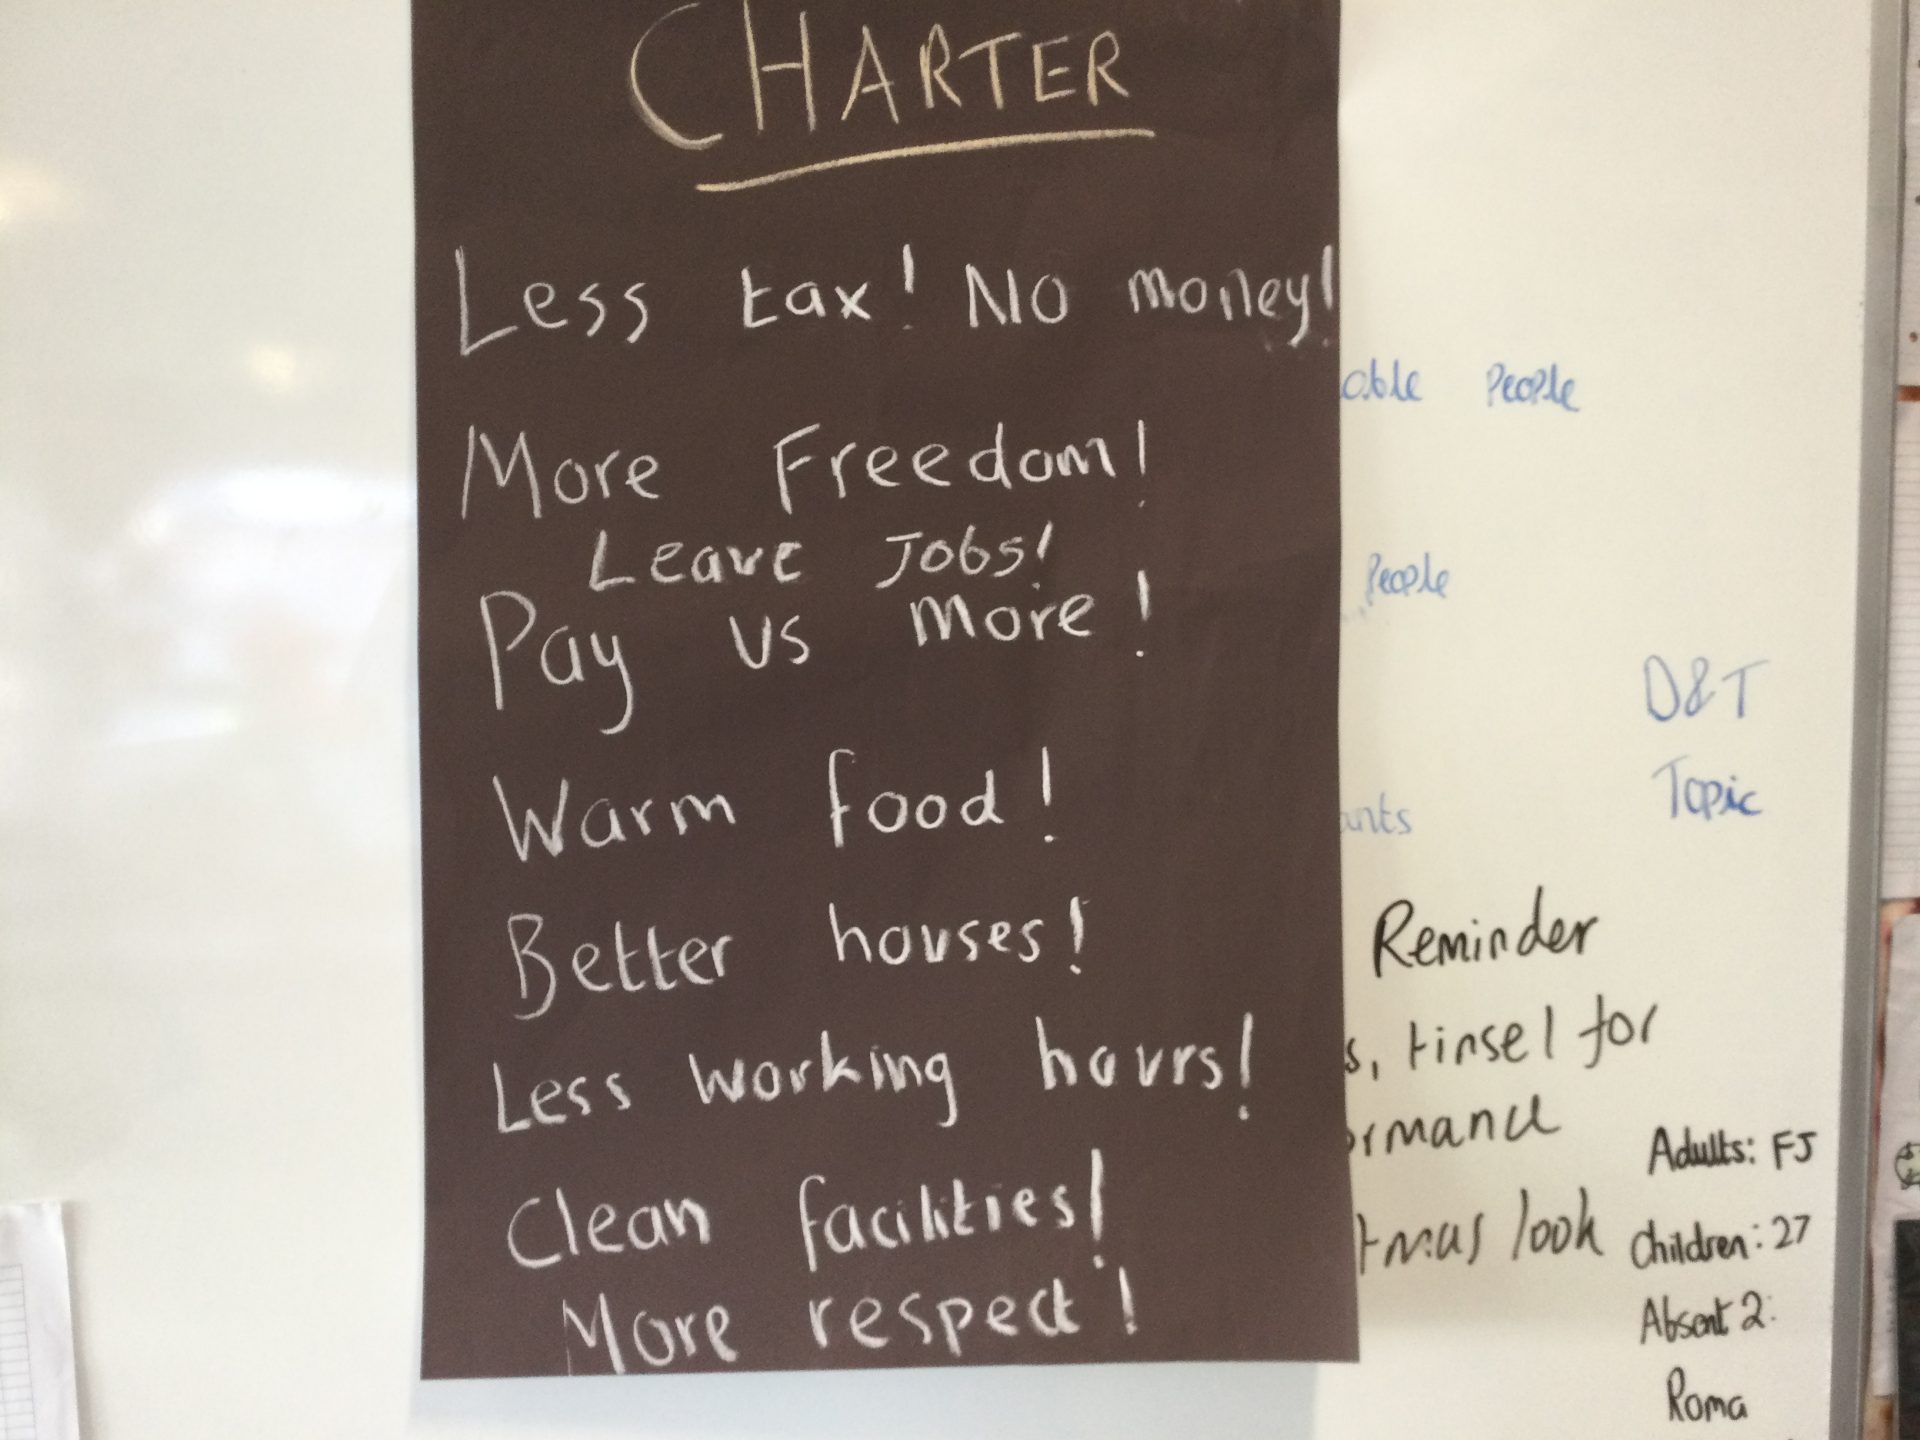 CHARTER
Less tax! No money!
More Freedom!
Leave Jobs!
Pay us more!
Warm food!
Better houses!
Less working hours!
Clean facilities!
More respect!
People
People
D&T
Topic
Reminder
tinsel for
look
Adults: FJ
Children: 27
Absent 2:
Roma